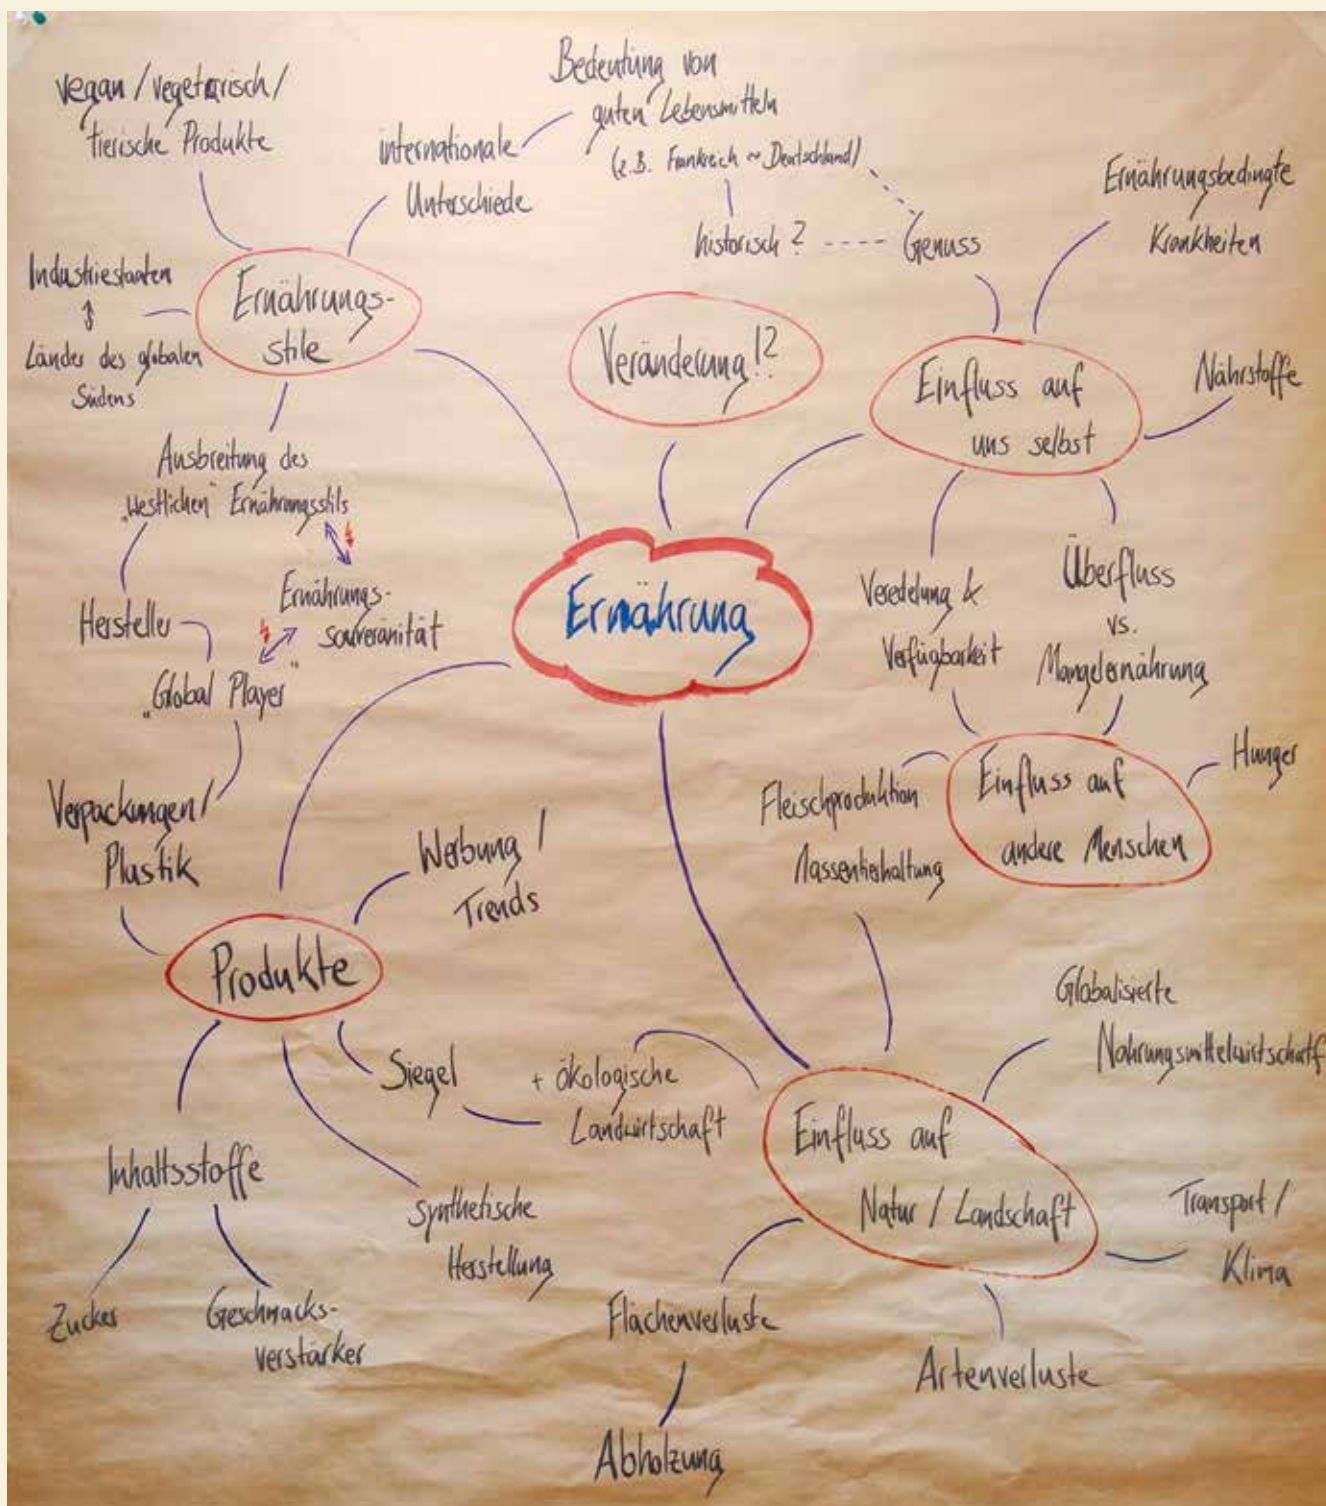 vegan / vegetarisch /
tierische Produkte
internationale
Unterschiede
Bedeutung von
guten Lebensmitteln
(z.B. Frankreich ~ Deutschland)
historisch ?
Genuss
Ernährungsbedingte
Krankheiten
Industriestaaten
Länder des globalen
Südens
Ernährungs-
stile
Veränderung !?
Einfluss auf
uns selbst
Nährstoffe
Ausbreitung des
„westlichen" Ernährungsstils
Hersteller
Ernährungs-
souveränität
„Global Player"
Ernährung
Veredelung &
Verfügbarkeit
Überfluss
vs.
Mangelernährung
Verpackungen /
Plastik
Werbung /
Trends
Fleischproduktion
Massentierhaltung
Einfluss auf
andere Menschen
Hunger
Produkte
Siegel
+ ökologische
Landwirtschaft
Globalisierte
Nahrungsmittelwirtschaft
Einfluss auf
Natur / Landschaft
Transport /
Klima
Inhaltsstoffe
synthetische
Herstellung
Zucker
Geschmacks-
verstärker
Flächenverluste
Artenverluste
Abholzung